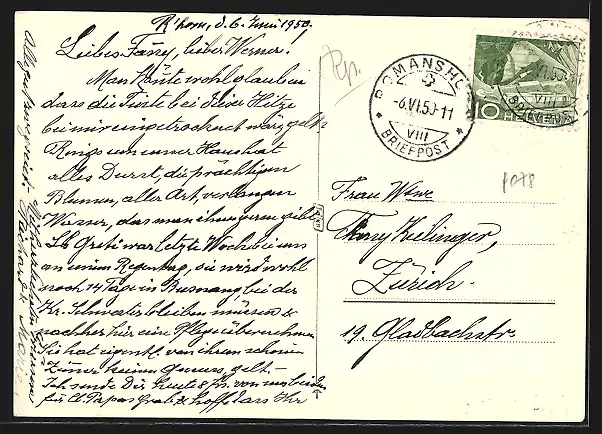 R'horn, d. 6. Juni 1950.
Liebes Fanny, lieber Werner!
Man könnte wohl glauben
dass die Tinte bei dieser Hitze
bei mir eingetrocknet wäre, gelt?
Rings um unser Haus hat
alles Durst, die prächtigen
Blumen, aller Art, verlangen
Wasser, das man ihnen gerne gibt.
Lb. Greti war letzte Woche bei uns
an einem Regentag, sie wird wohl
noch 14 Tage in Bussnang, bei der
Kr. Schwester bleiben müssen &
nachher hier ein Pflege übernehmen
Sie hat eigentl. von ihrem schönen
Zimmer keinen Genuss, gelt.
Ich sende Dir heute 8 fr. von uns beiden
für Papas Grab & hoffe dass Ihr
ROMANSHORN
-6.VI.50-11
VIII
BRIEFPOST
10 HELVETIA
VI.50
VIII
BRIEFPOST
Rp.
P078
Frau Wwe
Fanny Kielinger,
Zürich.
19. Gladbachstr